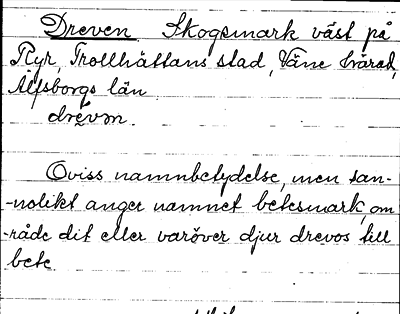 Dreven Skogsmark väst på
Ryr, Trollhättans stad, Väne härad,
Älfsborgs län.
drevm.
Oviss namnbetydelse, men san-
-nolikt anger namnet betesmark, om
-råde dit eller varöver djur drevos till
bete.